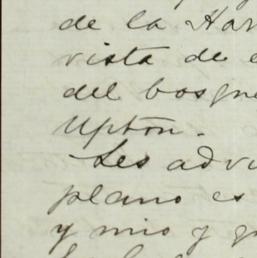 de la Har
vista de
del bosque
Upton.
Les advi
plano es
y mio y